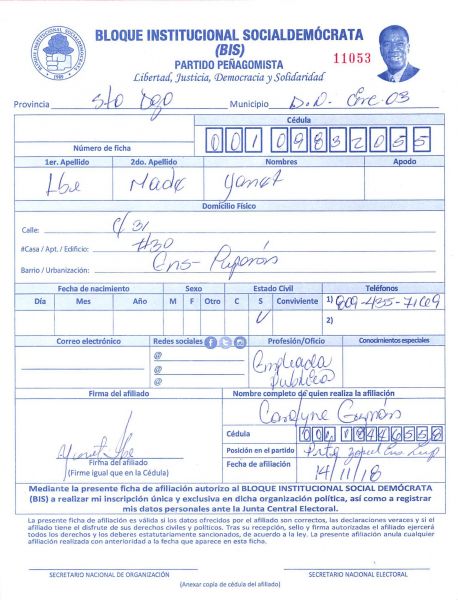 BLOQUE INSTITUCIONAL SOCIALDEMÓCRATA
(BIS)
PARTIDO PEÑAGOMISTA
11053
Libertad, Justicia, Democracia y Solidaridad
BLOQUE INSTITUCIONAL SOCIALDEMOCRATA
1989
Provincia Sto Dgo Municipio D.N. Circ. 03
Cédula
Número de ficha 00109832055
1er. Apellido 2do. Apellido Nombres Apodo
Abe Made Yanet
Domicilio Físico
Calle: C/ 31
#Casa / Apt. / Edificio: #30
Barrio / Urbanización: Ens-
Fecha de nacimiento Sexo Estado Civil Teléfonos
Día Mes Año M F Otro C S Conviviente 1) 809-435-7169
2)
Correo electrónico Redes sociales Profesión/Oficio Conocimientos especiales
@ Empleada
@ Publica
@
Firma del afiliado Nombre completo de quien realiza la afiliación
Carolyne Guzmán
Cédula
Posición en el partido
Yanet Abe
Firma del afiliado Fecha de afiliación 14/11/18
(Firme igual que en la Cédula)
Mediante la presente ficha de afiliación autorizo al BLOQUE INSTITUCIONAL SOCIAL DEMÓCRATA
(BIS) a realizar mi inscripción única y exclusiva en dicha organización política, así como a registrar
mis datos personales ante la Junta Central Electoral.
La presente ficha de afiliación es válida si los datos ofrecidos por el afiliado son correctos, las declaraciones veraces y si el
afiliado tiene el disfrute de sus derechos civiles y políticos. Tras su recepción, sello y firma autorizadas el afiliado ejercerá
todos los derechos y los deberes estatutariamente sancionados, de acuerdo a la ley. La presente afiliación anula cualquier
afiliación realizada con anterioridad a la fecha que aparece en esta ficha.
SECRETARIO NACIONAL DE ORGANIZACIÓN SECRETARIO NACIONAL ELECTORAL
(Anexar copia de cédula del afiliado)